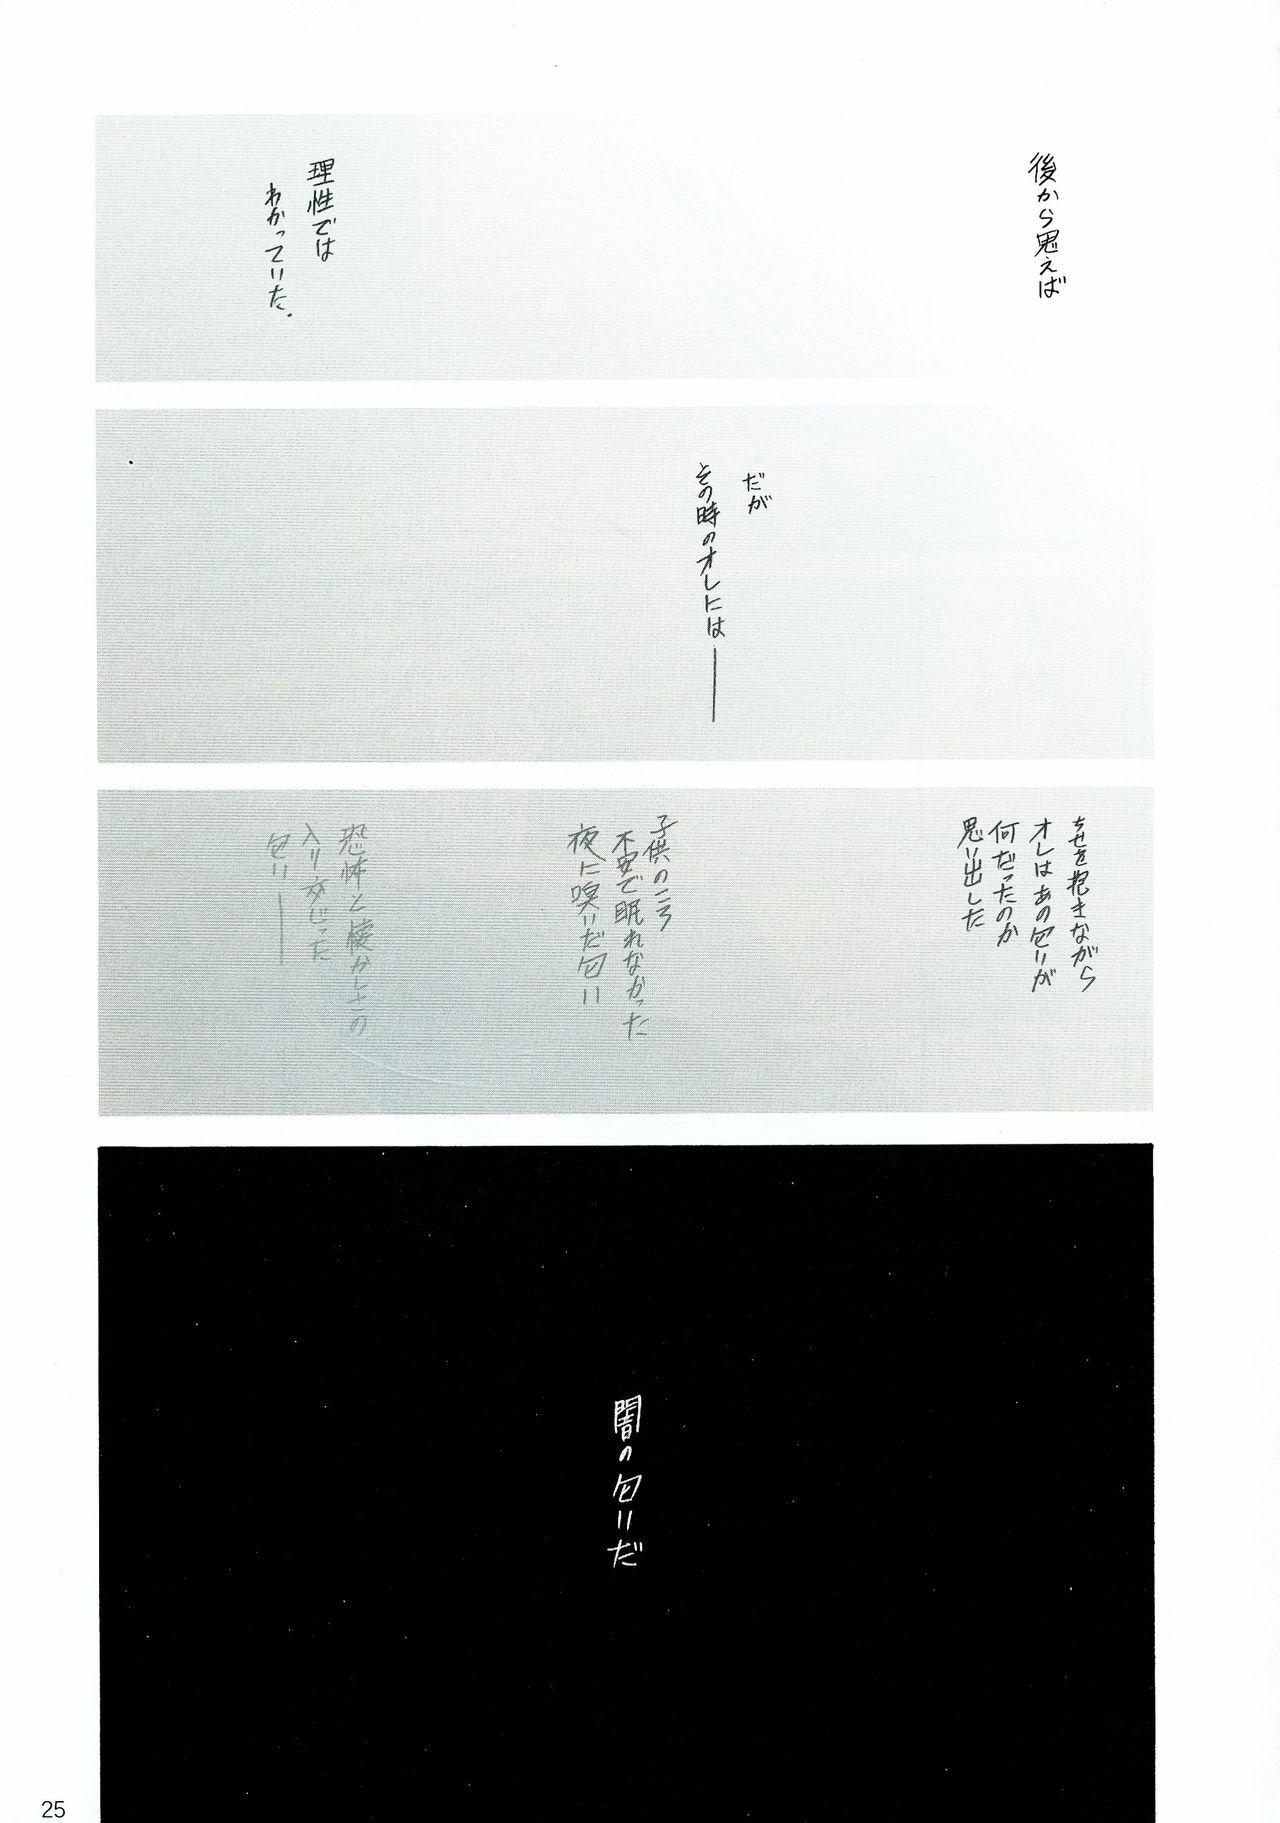 後から思えば
理性では
わかっていた.
だが
その時のオレには――
ちせを抱きながら
オレはあの匂いが
何だったのか
思い出した
子供のころ
不安で眠れなかった
夜に嗅いだ匂い
恐怖と懐かしさの
入り交じった
匂い――
闇の匂いだ
25